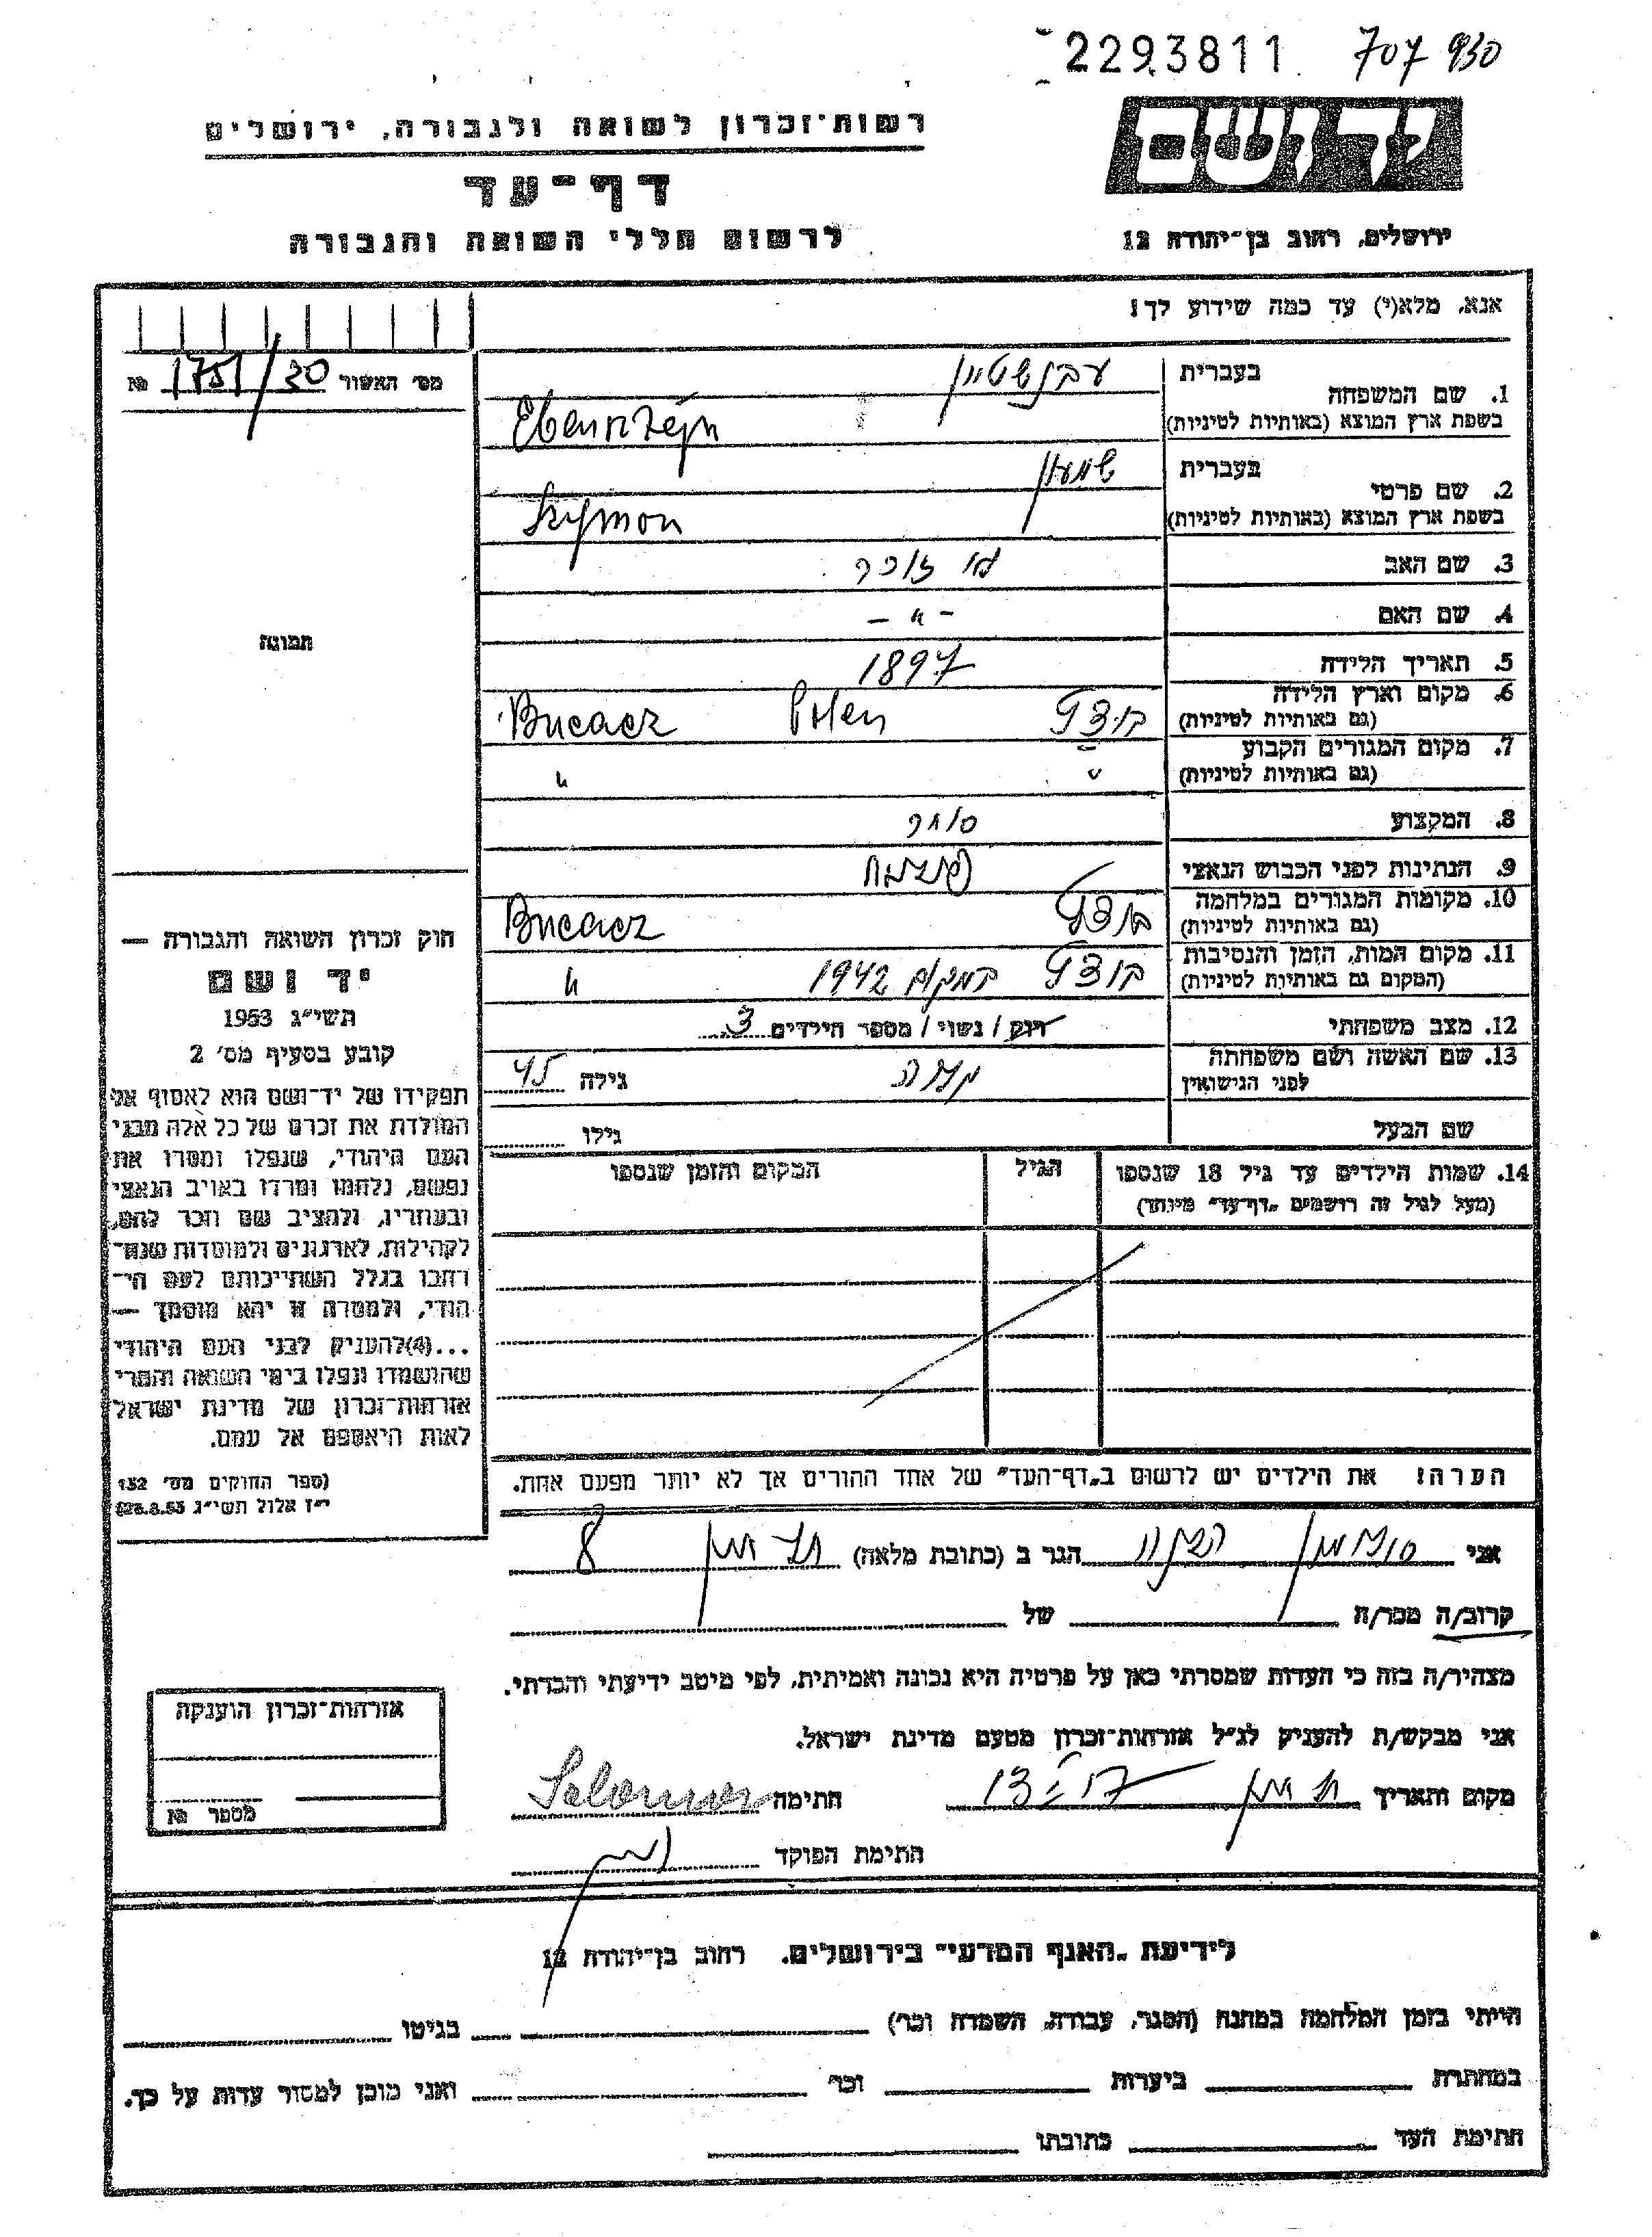 2293811 707 930
יד ושם
רשות־זכרון לשואה ולגבורה, ירושלים
דף־עד
לרשום חללי השואה והגבורה
ירושלים, רחוב בן־יהודה 12
אנא, מלא(י) עד כמה שידוע לך!
מס׳ האשור 1751/30 №
1. שם המשפחה בעברית
בשפת ארץ המוצא (באותיות לטיניות) Ebensztejn
2. שם פרטי בעברית שמעון
בשפת ארץ המוצא (באותיות לטיניות) Szymon
3. שם האב לא זוכר
4. שם האם - " -
5. תאריך הלידה 1897
6. מקום וארץ הלידה
(גם באותיות לטיניות) Polen Buczacz
7. מקום המגורים הקבוע
(גם באותיות לטיניות) " "
8. המקצוע סוחר
9. הנתינות לפני הכבוש הנאצי
10. מקומות המגורים במלחמה
(גם באותיות לטיניות) Buczacz
11. מקום המות, הזמן והנסיבות
(המקום גם באותיות לטיניות) במקום 1942 "
12. מצב משפחתי רווק / נשוי / מספר הילדים 3
13. שם האשה ושם משפחתה
לפני הנישואין גילה 45
שם הבעל גילו
14. שמות הילדים עד גיל 18 שנספו הגיל המקום והזמן שנספו
(מעל לגיל זה רושמים „דף־עד״ מיוחד)
הערה! את הילדים יש לרשום ב„דף־העד״ של אחד ההורים אך לא יותר מפעם אחת.
תמונה
חוק זכרון השואה והגבורה —
יד ושם
תשי״ג 1953
קובע בסעיף מס׳ 2
תפקידו של יד־ושם הוא לאסוף אל
המולדת את זכרם של כל אלה מבני
העם היהודי, שנפלו ומסרו את
נפשם, נלחמו ומרדו באויב הנאצי
ובעוזריו, ולהציב שם וזכר להם,
לקהילות, לארגונים ולמוסדות שנח־
רחבו בגלל השתייכותם לעם הי־
הודי, ולמטרה זו יהא מוסמך —
...(4)להעניק לבני העם היהודי
שהושמדו ונפלו בימי השואה והמרי
אזרחות־זכרון של מדינת ישראל
לאות היאספם אל עמם.
(ספר החוקים מס׳ 132
י״ז אלול תשי״ג 28.8.53)
אני הגר ב (כתובת מלאה) 8
קרוב/ה מכר/ה של
מצהיר/ה בזה כי העדות שמסרתי כאן על פרטיה היא נכונה ואמיתית, לפי מיטב ידיעתי והכרתי.
אני מבקש/ת להעניק לנ״ל אזרחות־זכרון מטעם מדינת ישראל.
מקום ותאריך חתימה
חתימת הפוקד
אזרחות־זכרון הוענקה
מספר №
לידיעת „האגף המדעי״ בירושלים. רחוב בן־יהודה 12
הייתי בזמן המלחמה במחנה (הסגר, עבודה, השמדה וכו׳) בגיטו
במחתרת ביערות וכו׳ ואני מוכן למסור עדות על כך.
חתימת העד כתובתו